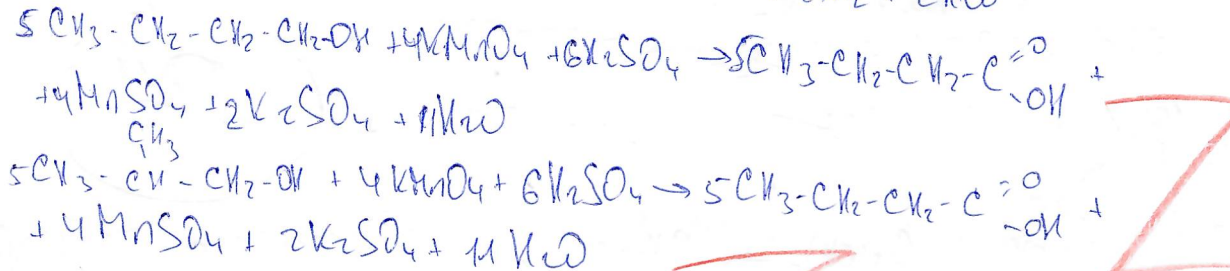 5 CH3 - CH2 - CH2 - CH2-OH + 4KMnO4 + 6H2SO4 → 5CH3-CH2-CH2-C =O -OH +
+ 4MnSO4 + 2K2SO4 + 11H2O
CH3
5CH3 - CH - CH2-OH + 4KMnO4 + 6H2SO4 → 5CH3-CH2-CH2-C =O -OH +
+ 4MnSO4 + 2K2SO4 + 11H2O